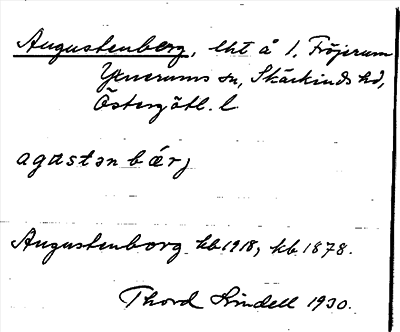 Augustenberg, lht å 1. Fröjerum
Yxnerums sn, Skärkinds hd,
Östergötl. l
agastən bǽrj
Augustenborg hb 1918, kb 1878.
Thord Lindell 1930.